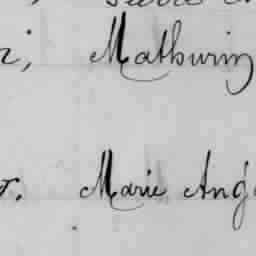 i, Mathurin
r. Marie Ang